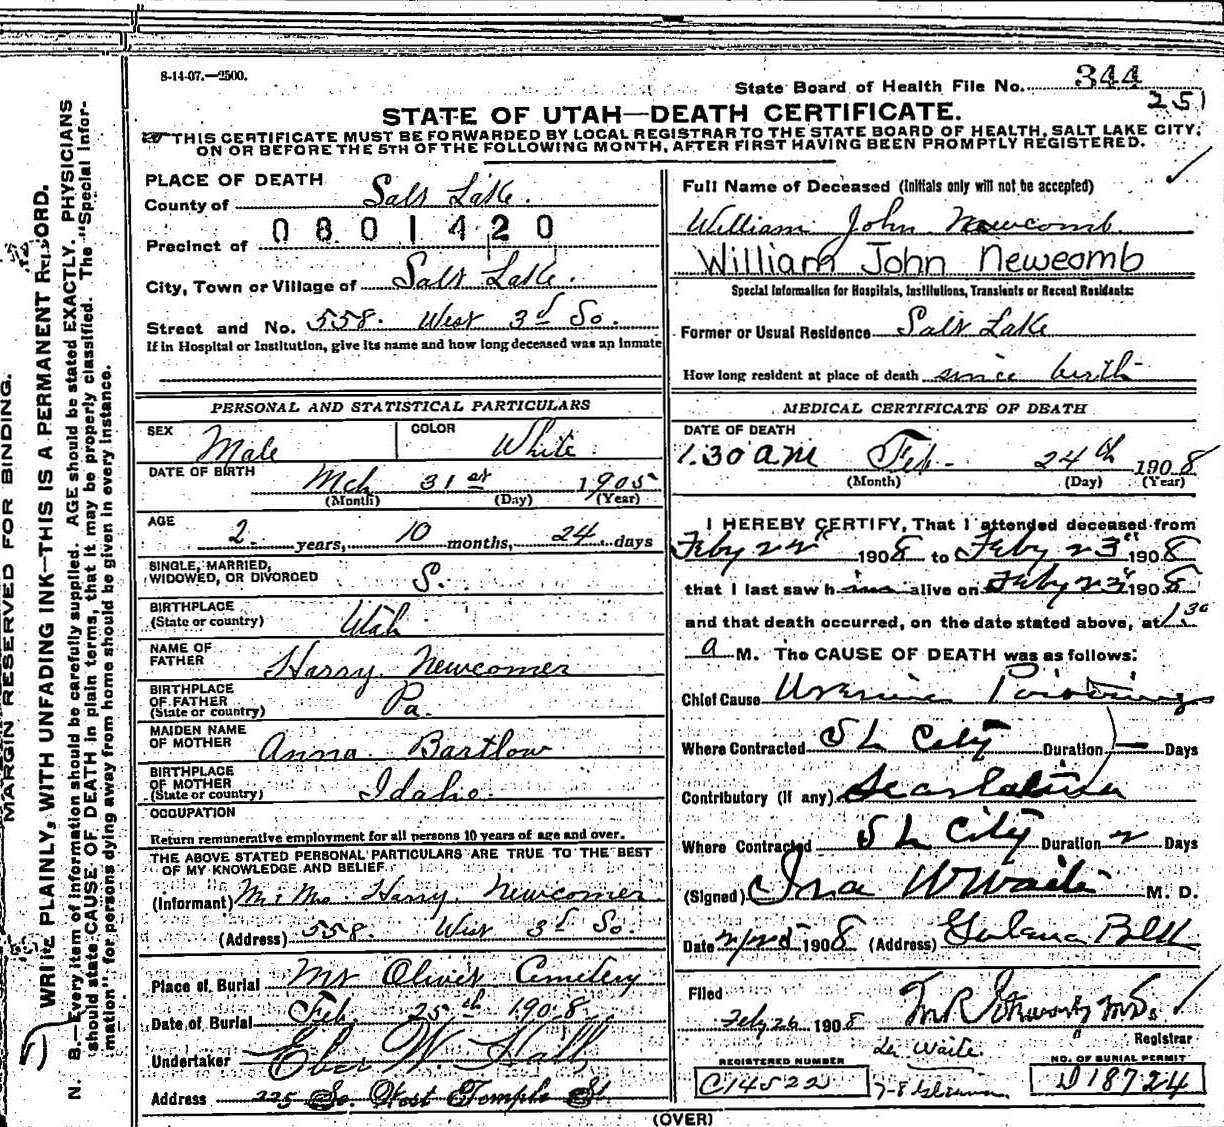 8-14-07.—2500.
State Board of Health File No. 344
251
STATE OF UTAH—DEATH CERTIFICATE.
THIS CERTIFICATE MUST BE FORWARDED BY LOCAL REGISTRAR TO THE STATE BOARD OF HEALTH, SALT LAKE CITY,
ON OR BEFORE THE 5TH OF THE FOLLOWING MONTH, AFTER FIRST HAVING BEEN PROMPTLY REGISTERED.
MARGIN RESERVED FOR BINDING.
WRITE PLAINLY, WITH UNFADING INK—THIS IS A PERMANENT RECORD.
N. B.—Every item of information should be carefully supplied. AGE should be stated EXACTLY. PHYSICIANS
should state CAUSE OF DEATH in plain terms, that it may be properly classified. The "Special Infor-
mation" for persons dying away from home should be given in every instance.
PLACE OF DEATH
County of Salt Lake.
0801420
Precinct of
City, Town or Village of Salt Lake.
Street and No. 558. West 3d So.
If in Hospital or Institution, give its name and how long deceased was an inmate
PERSONAL AND STATISTICAL PARTICULARS
SEX Male COLOR White.
DATE OF BIRTH Mch 31st 1905
(Month) (Day) (Year)
AGE 2. years, 10 months, 24 days
SINGLE, MARRIED,
WIDOWED, OR DIVORCED S.
BIRTHPLACE
(State or country) Utah
NAME OF
FATHER Harry Newcomer
BIRTHPLACE
OF FATHER
(State or country) Pa.
MAIDEN NAME
OF MOTHER Anna Bartlow
BIRTHPLACE
OF MOTHER
(State or country) Idaho.
OCCUPATION
Return remunerative employment for all persons 10 years of age and over.
THE ABOVE STATED PERSONAL PARTICULARS ARE TRUE TO THE BEST
OF MY KNOWLEDGE AND BELIEF
(Informant) Mr & Mrs. Harry Newcomer
(Address) 558. West 3d So.
Place of Burial Mt Olivet Cemetery
Date of Burial Feb. 25th 1908.
Undertaker Eber W. Hall
Address 225 So. West Temple St.
Full Name of Deceased (Initials only will not be accepted)
William John Newcomb.
William John Newcomb
Special Information for Hospitals, Institutions, Transients or Recent Residents:
Former or Usual Residence Salt Lake
How long resident at place of death since birth
MEDICAL CERTIFICATE OF DEATH
DATE OF DEATH
1.30 am Feb. 24th 1908
(Month) (Day) (Year)
I HEREBY CERTIFY, That I attended deceased from
Feby 22d 1908 to Feby 23d 1908
that I last saw him alive on Feby 23d 1908
and that death occurred, on the date stated above, at 1.30
a M. The CAUSE OF DEATH was as follows:
Chief Cause Uraemic Poisoning
Where Contracted S L City Duration — Days
Contributory (if any) Scarlatina
Where Contracted S L City Duration 2 Days
(Signed) Ira W Waite M. D.
Date 2/25 1908 (Address)
Filed
Feby 26 1908
Registrar
Dr Waite
REGISTERED NUMBER
C14522
NO. OF BURIAL PERMIT
D18724
(OVER)